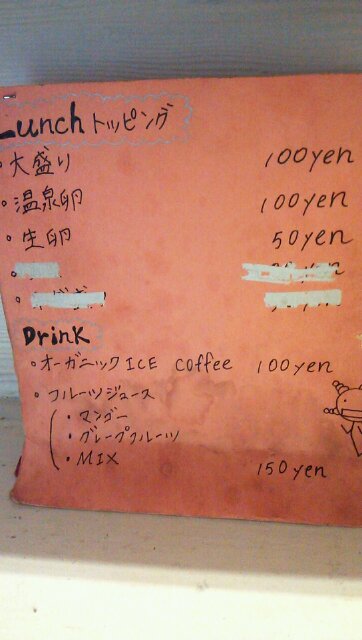 Lunch トッピング
・大盛り 100yen
・温泉卵 100yen
・生卵 50yen
Drink
・オーガニック ICE coffee 100yen
・フルーツジュース
・マンゴー
・グレープフルーツ
・MIX 150yen